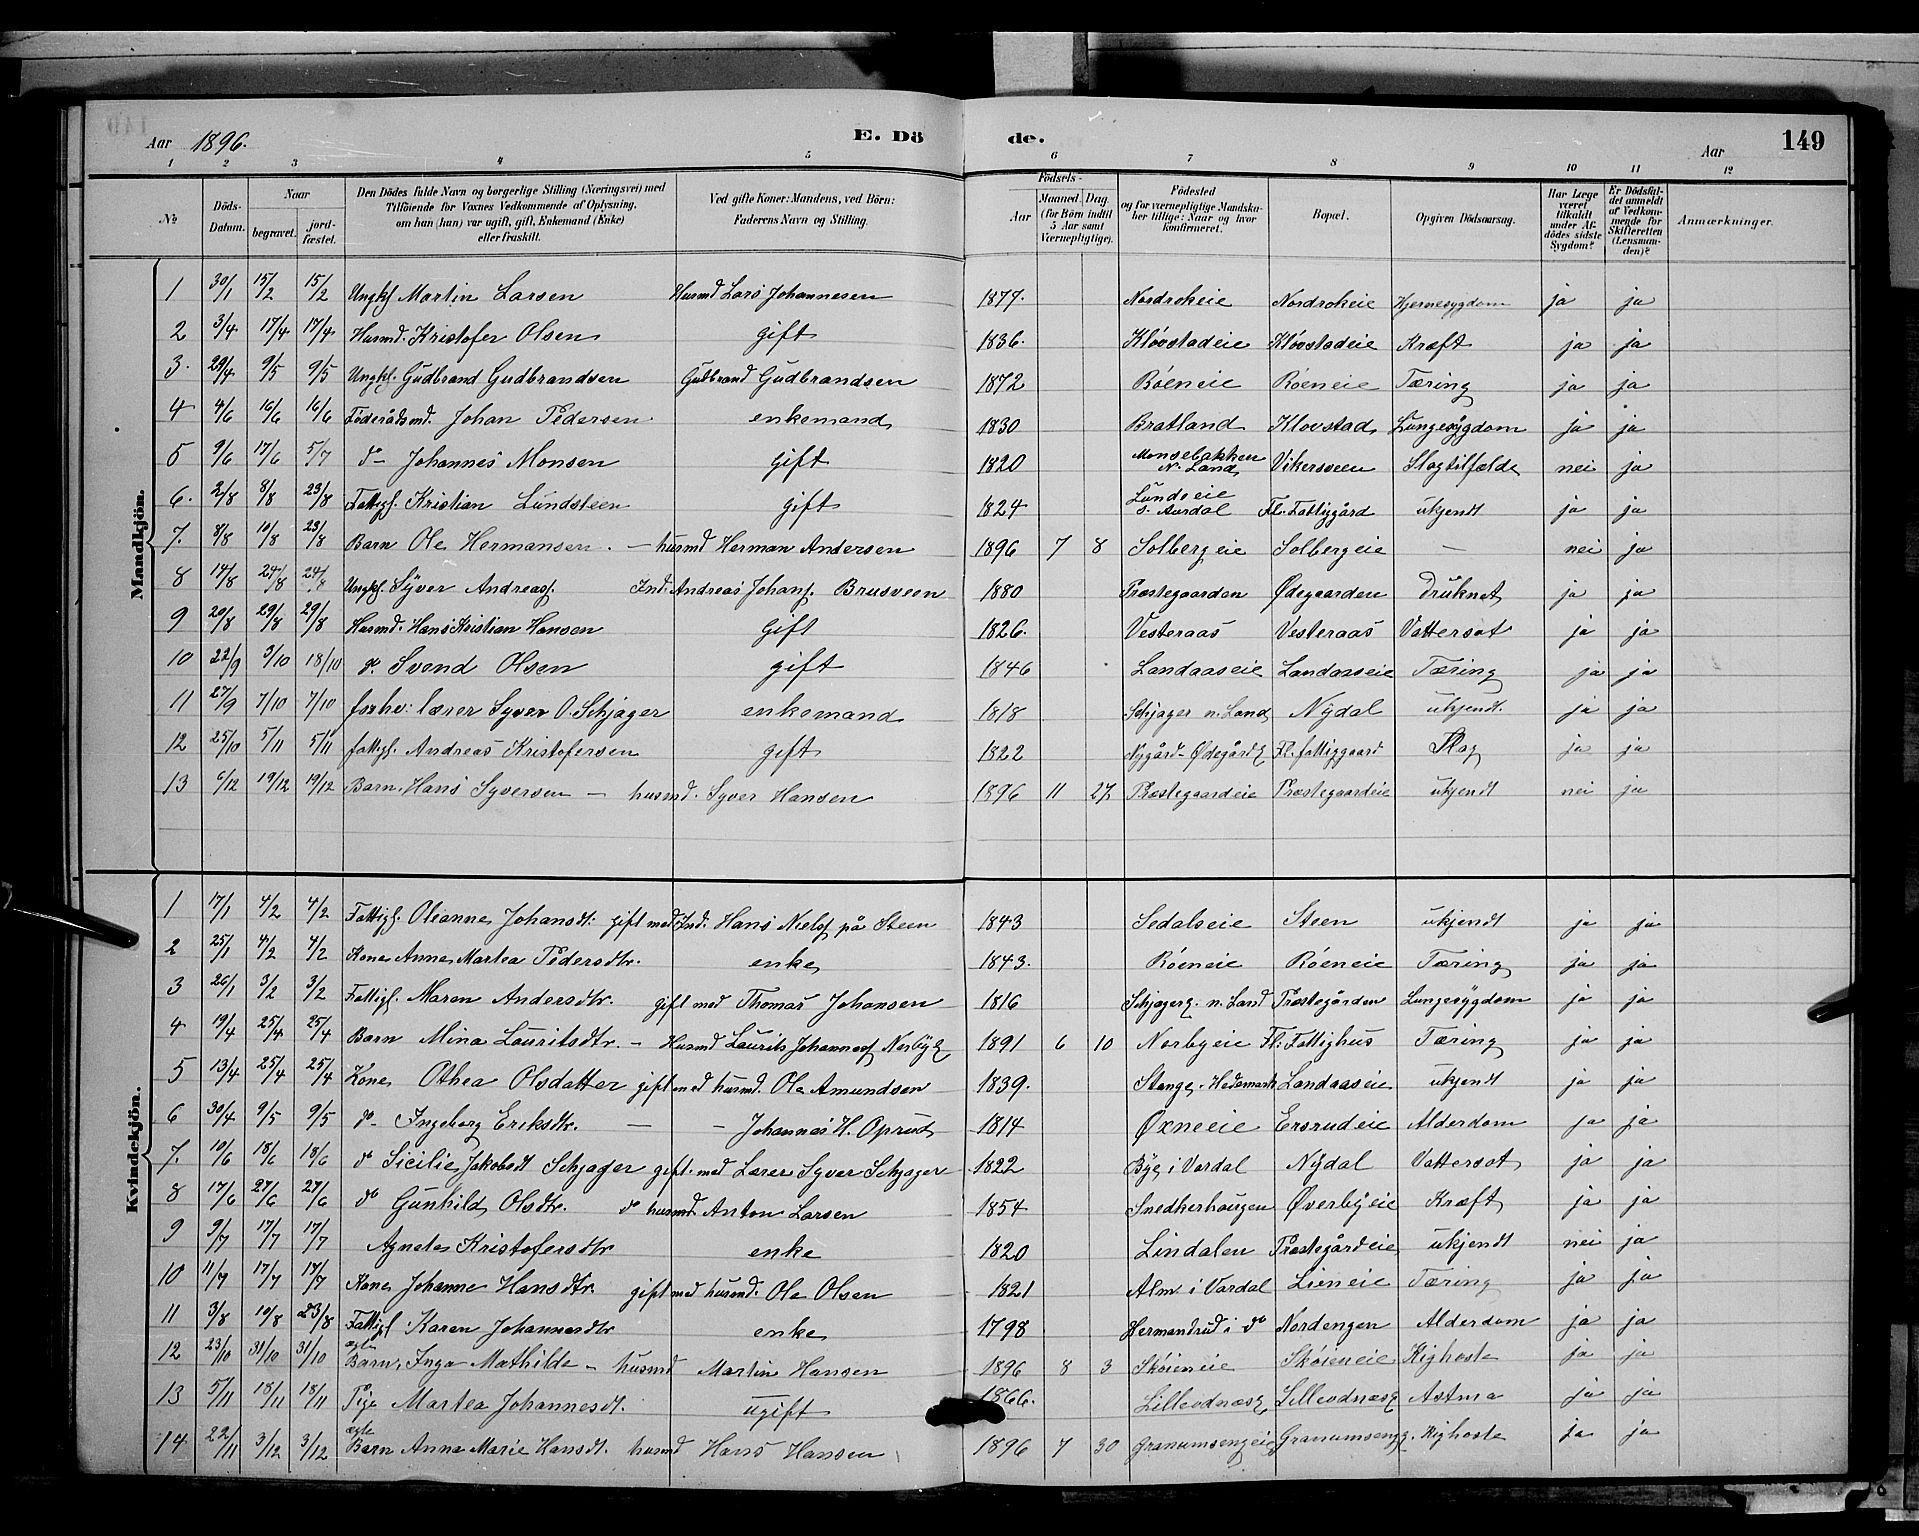 Aar 1896. E. Dö de. Aar 149
1 2 3 4 5 6 7 8 9 10 11 12
No Döds-Datum. Naar begravet. jord-fæstet. Den Dödes fulde Navn og borgerlige Stilling (Næringsvei) med Tilföiende for Voxnes Vedkommende af Oplysning, om han (hun) var ugift, gift, Enkemand (Enke) eller fraskilt. Ved gifte Koner: Mandens, ved Börn: Faderens Navn og Stilling. Födsels- Aar Maaned. Dag. (for Börn indtil 5 Aar samt Værnepligtige). Födested og for værnepligtige Mandska-ber tillige: Naar og hvor konfirmeret. Bopæl. Opgiven Dödsaarsag. Har Læge været tilkaldt under Af-dödes sidste Sygdom? Er Dödsfal-det anmeldt af Vedkom-mende for Skifteretten (Lensman-den)? Anmærkninger.
Mandkjön.
1 30/1 15/2 15/2 Ungkf Martin Larsen Husmd Lars Johannesen 1877. Nordrokeie Nordrokeie Hjernesygdom ja ja
2 3/4 17/4 17/4 Husmd. Kristofer Olsen gift 1836. Kløvstadeie Kløvstadeie Kræft ja ja
3. 29/4 9/5 9/5 Ungkf. Gudbrand Gudbrandsen Gudbrand Gudbrandsen 1872 Røeneie Røeneie Tæring ja ja
4 4/6 16/6 16/6 Føderådsmd. Johan Pedersen enkemand 1830 Bratland Klovstad Lungesygdom ja ja
5 9/6 17/6 5/7 do- Johannes Monsen gift 1820 Monsebakken N. Land Vikersveen Slagtilfælde nei ja
6. 2/8 8/8 23/8 Fattigl. Kristian Lundsteen gift 1824 Lundseie S. Aurdal Fl. Fattiggård ukjendt ja ja
7. 8/8 10/8 23/8 Barn Ole Hermansen. - husmd Herman Andersen 1896 7 8 Solbergeie Solbergeie — nei ja
8 14/8 24/8 24/8 Ungkf. Syver Andreasf. Ind. Andreas Johansf. Brusveen 1880 Præstegaarden Ødegaarden Druknet ja ja
9 20/8 29/8 29/8 Husmd. Hans Kristian Hansen Gift 1826. Vesteraas Vesteraas Vattersot ja ja
10 22/9 3/10 18/10 do. Svend Olsen gift 1846 Landaaseie Landaaseie Tæring ja ja
11 27/9 7/10 7/10 forhv: lærer Syver O. Schjager enkemand 1818 Schjager n. Land Nydal ukjendt. ja ja
12 25/10 5/11 5/11 fattigl. Andreas Kristofersen gift 1822 Nygård-Ødegårdg Fl. fattiggaard Slag ja ja
13 6/12 19/12 19/12 Barn. Hans Syversen - husmd. Syver Hansen 1896 11 27 Præstegaardeie Præstegaardeie ukjendt nei ja
Kvindekjön.
1 17/1 4/2 4/2 Fattigl. Oleanne Johansdt: gift med Ind. Hans Nielsf på Steen 1843 Sedalseie Steen ukjendt ja ja
2 25/1 4/2 4/2 Kone Anne Martea Pedersdtr. enke 1843. Røeneie Røeneie Tæring ja ja
3 26/1 3/2 3/2 Fattigl. Maren Andersdtr. gift med Thomas Johansen 1816 Schjagerg. n. Land Præstegården Lungesygdom ja ja
4 19/4 25/4 25/4 Barn Mina Lauritsdtr. - Husmd Laurits Johannesf Norbyg 1891 6 10 Norbyeie Fl. Fattighus Tæring ja ja
5 13/4 25/4 25/4 Kone Othea Olsdatter gift med husmd. Ole Amundsen 1839. Stange, Hedemark Landaaseie ukjendt ja ja
6 30/4 9/5 9/5 do- Ingeborg Eriksdtr. — - Johannes H. Oprud 1814 Øxneeie Ersrudeie Alderdom ja ja
7. 10/6 18/6 18/6 do Sicilie Jakobsdt Schjager gift. med Lærer Syver Schjager 1822 Bye i Vardal Nydal Vattersot ja ja
8 17/6 27/6 27/6 do Gunhild Olsdtr. do husmd. Anton Larsen 1854 Snedkerhaugen Øverbyeie Kræft ja ja
9 9/7 17/7 17/7 Agnete Kristofersdtr enke 1820 Lindalen Præstegårdeie ukjendt nei ja
10 11/7 17/7 17/7 Kone Johanne Hansdtr. gift med husmd. Ole Olsen 1821 Alm i Vardal Lieneie Tæring ja ja
11 3/8 10/8 23/8 Fattigl Karen Johannesdtr enke 1798 Hermandrud i do Nordengen Alderdom ja ja
12 23/10 31/10 31/10 ægte Barn, Inga Mathilde - husmd Martin Hansen 1896 8 3 Skøieneie Skøieneie Kighoste ja ja
13 5/11 18/11 18/11 Pige Martea Johannesdt. ugift 1866. Lilleodnæsg Lilleodnæsg Astma ja ja
14 22/11 3/12 3/12 ægte Barn Anne Marie Hansdt. husmd Hans Hansen 1896 7 30 Granumsengeie Granumsengg. Kighoste ja ja